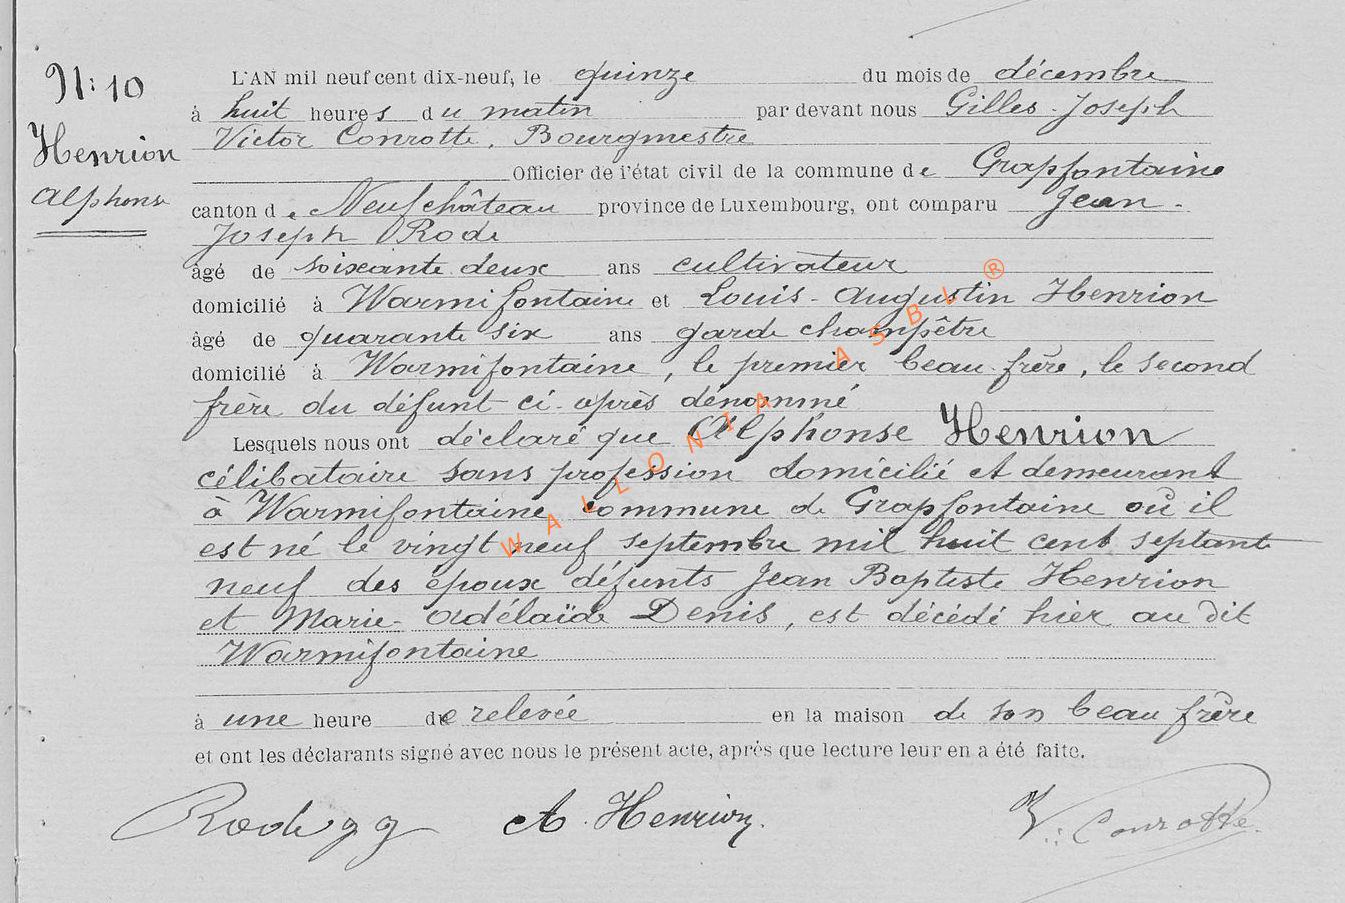 N: 10
Henrion
Alphonse
L'AN mil neuf cent dix-neuf, le quinze du mois de décembre
à huit heures du matin par devant nous Gilles-Joseph
Victor Conrotte, Bourgmestre
Officier de l'état civil de la commune de Grapfontaine
canton de Neufchâteau province de Luxembourg, ont comparu Jean-
Joseph Rode
âgé de soixante deux ans cultivateur
domicilié à Warmifontaine et Louis-Augustin Henrion
âgé de quarante six ans garde champêtre
domicilié à Warmifontaine, le premier beau frère, le second
frère du défunt ci-après dénommé
Lesquels nous ont déclaré que Alphonse Henrion
célibataire sans profession domicilié et demeurant
à Warmifontaine commune de Grapfontaine où il
est né le vingt neuf septembre mil huit cent septante
neuf des époux défunts Jean Baptiste Henrion
et Marie-Adélaïde Denis, est décédé hier au dit
Warmifontaine
à une heure de relevée en la maison de son beau frère
et ont les déclarants signé avec nous le présent acte, après que lecture leur en a été faite.
Rode A. Henrion. V: Conrotte.
WALLONIA ASBL ®